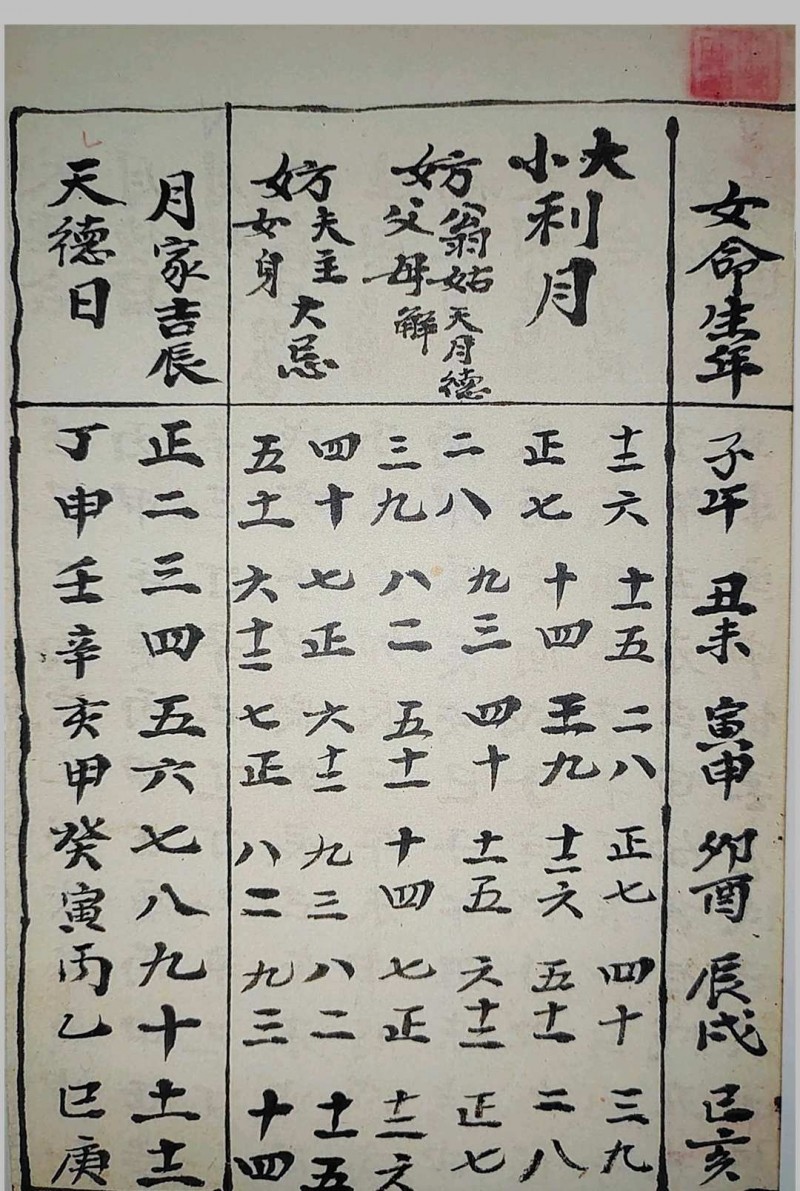 女命生年 子午 丑未 寅申 卯酉 辰戌 巳亥
大小利月
十二六 十一五 二八 正七 四十 三九
正七 十四 三九 十二六 五十一 二八
妨翁姑父母天月德解
二八 九三 四十 十一五 六十二 正七
三九 八二 五十一 十四 七正 十二六
妨夫主女身大忌
四十 七正 六十二 九三 八二 十一五
五十一 六十二 七正 八二 九三 十四
月家吉辰 正二三四五六七八九十十一十二
天德日 丁申壬辛亥甲癸寅丙乙巳庚